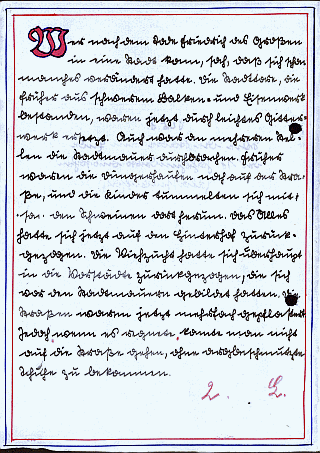 Wer nach dem Tode Friedrich des Großen
in eine Stadt kam, sah, daß sich schon
manches verändert hatte. Die Stadttore, die
früher aus schwerem Balken- und Eisenwerk
bestanden, waren jetzt durch leichtes Gitter-
werk ersetzt. Auch war an mehreren Stel-
len die Stadtmauer durchbrochen. Früher
waren die Düngerhaufen noch auf der Stra-
ße, und die Kinder tummelten sich mit
den Schweinen dort herum. Das Alles
hatte sich jetzt auf den Hinterhof zurück-
gezogen. Die Viehzucht hatte sich überhaupt
in die Vorstädte zurückgezogen, die sich
vor den Stadtmauern gebildet hatten. Die
Straßen waren jetzt mehrfach gepflastert
Jedoch wenn es regnete, konnte man nicht
auf die Straße gehen, ohne
Schuhe zu bekommen.
2. L.